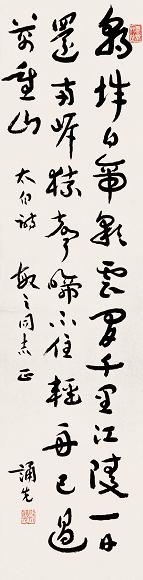 朝辞白帝彩雲間千里江陵一日
還兩岸猿聲啼不住輕舟已過
萬重山 太白詩 之同志正 誦先